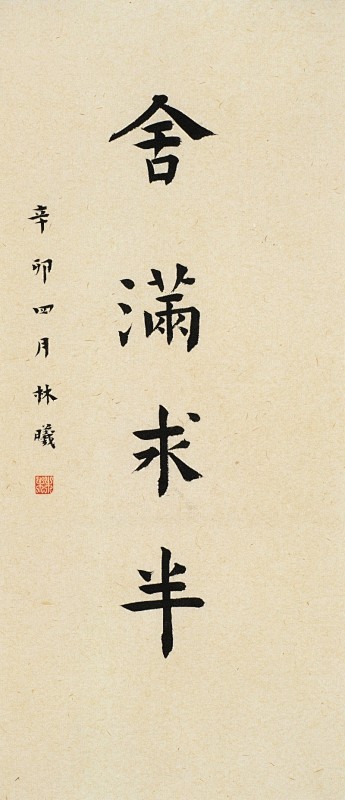 舍滿求半
辛卯四月林曦